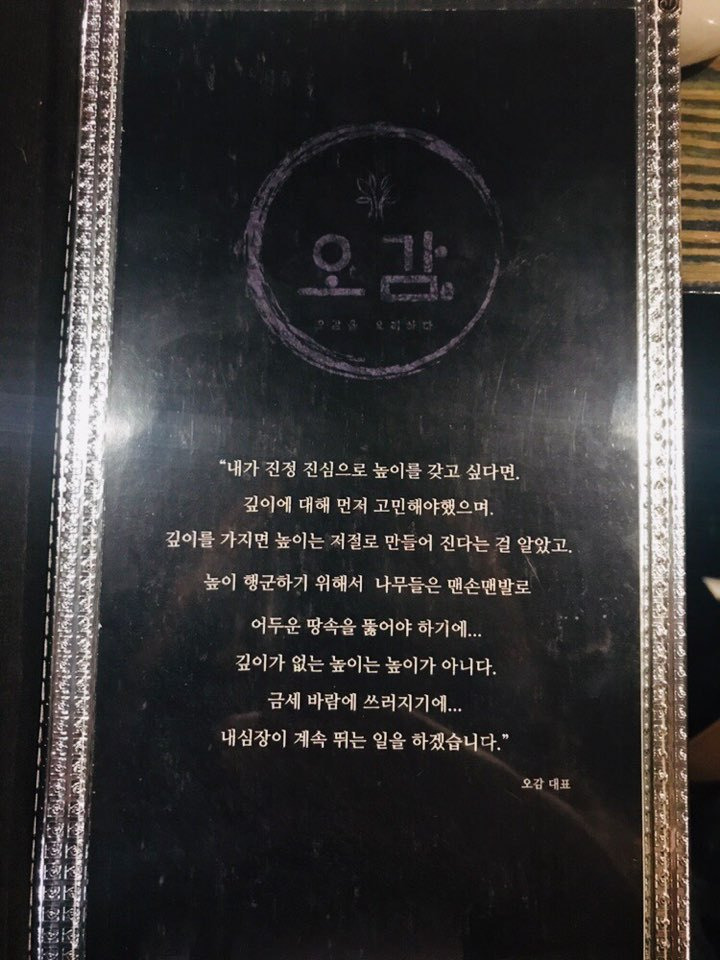 오감
오감을 요리하다
“내가 진정 진심으로 높이를 갖고 싶다면.
깊이에 대해 먼저 고민해야했으며.
깊이를 가지면 높이는 저절로 만들어 진다는 걸 알았고.
높이 행군하기 위해서 나무들은 맨손맨발로
어두운 땅속을 뚫어야 하기에...
깊이가 없는 높이는 높이가 아니다.
금세 바람에 쓰러지기에...
내심장이 계속 뛰는 일을 하겠습니다.”
오감 대표